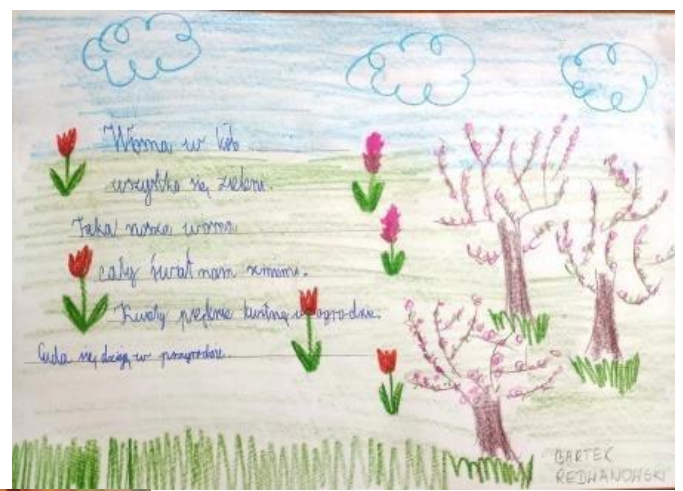 Wiosna w koło
wszystko się zieleni.
Taka nasza wiosna
cały świat nam zmieni.
Kwiaty pięknie kwitną w ogrodzie.
Cuda się dzieją w przyrodzie.
BARTEK
REDWANOWSKI